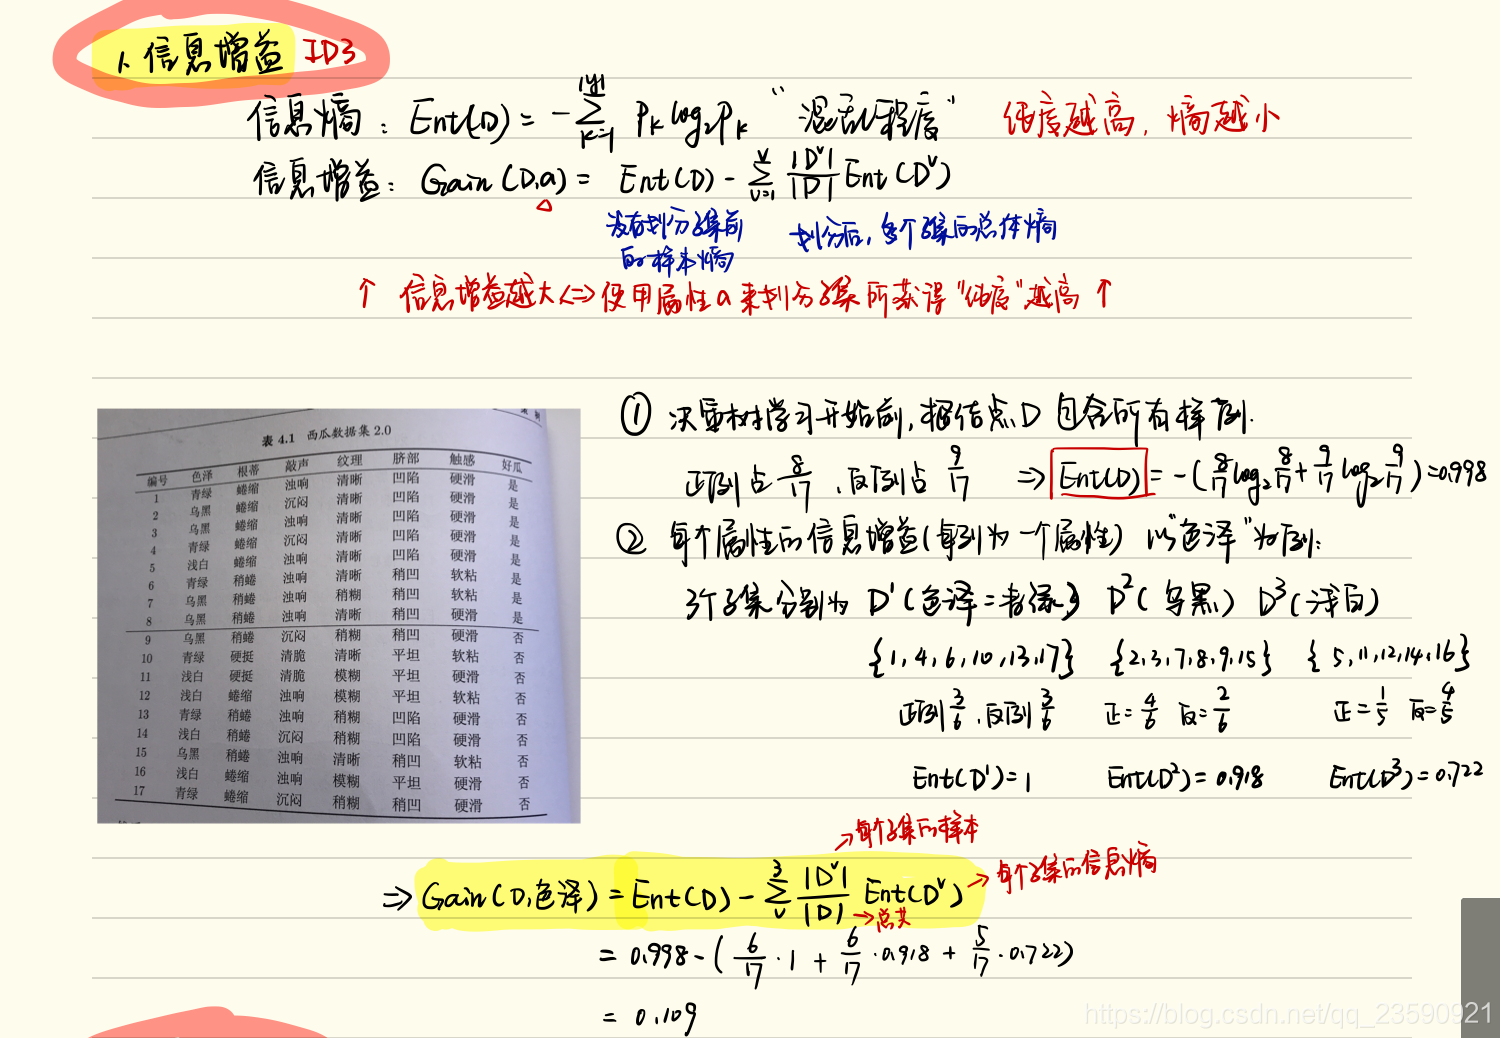 1. 信息增益 ID3
信息熵：Ent(D) = -∑_{k=1}^{|y|} P_k log₂P_k “混乱程度” 纯度越高，熵越小
信息增益：Gain(D,a) = Ent(D) - ∑_{v=1}^{V} |D^v|/|D| Ent(D^v)
没有划分子集前的样本熵
划分后，每个子集的总体熵
↑ 信息增益越大 <=> 使用属性a来划分子集所获得“纯度”越高 ↑
表 4.1 西瓜数据集 2.0
编号 色泽 根蒂 敲声 纹理 脐部 触感 好瓜
1 青绿 蜷缩 浊响 清晰 凹陷 硬滑 是
2 乌黑 蜷缩 沉闷 清晰 凹陷 硬滑 是
3 乌黑 蜷缩 浊响 清晰 凹陷 硬滑 是
4 青绿 蜷缩 沉闷 清晰 凹陷 硬滑 是
5 浅白 蜷缩 浊响 清晰 凹陷 硬滑 是
6 青绿 稍蜷 浊响 清晰 稍凹 软粘 是
7 乌黑 稍蜷 浊响 稍糊 稍凹 软粘 是
8 乌黑 稍蜷 浊响 清晰 稍凹 硬滑 是
9 乌黑 稍蜷 沉闷 稍糊 稍凹 硬滑 否
10 青绿 硬挺 清脆 清晰 平坦 软粘 否
11 浅白 硬挺 清脆 模糊 平坦 硬滑 否
12 浅白 蜷缩 浊响 模糊 平坦 软粘 否
13 青绿 稍蜷 浊响 稍糊 凹陷 硬滑 否
14 浅白 稍蜷 沉闷 稍糊 凹陷 硬滑 否
15 乌黑 稍蜷 浊响 清晰 稍凹 软粘 否
16 浅白 蜷缩 浊响 模糊 平坦 硬滑 否
17 青绿 蜷缩 沉闷 稍糊 稍凹 硬滑 否
① 决策树学习开始前，根结点D包含所有样例.
正例占 8/17，反例占 9/17 => Ent(D) = -(8/17 log₂ 8/17 + 9/17 log₂ 9/17) = 0.998
② 每个属性的信息增益(每列为一个属性) 以“色泽”为例：
3个子集分别为 D¹(色泽=青绿) D²(乌黑) D³(浅白)
{1,4,6,10,13,17} {2,3,7,8,9,15} {5,11,12,14,16}
正例 3/6，反例 3/6 正=4/6 反=2/6 正=1/5 反=4/5
Ent(D¹)=1 Ent(D²)=0.918 Ent(D³)=0.722
→每个子集的样本
=> Gain(D,色泽) = Ent(D) - ∑_{v}^{3} |D^v|/|D| Ent(D^v) →每个子集的信息熵
→总共
= 0.998 - (6/17·1 + 6/17·0.918 + 5/17·0.722)
= 0.109
https://blog.csdn.net/qq_23590921